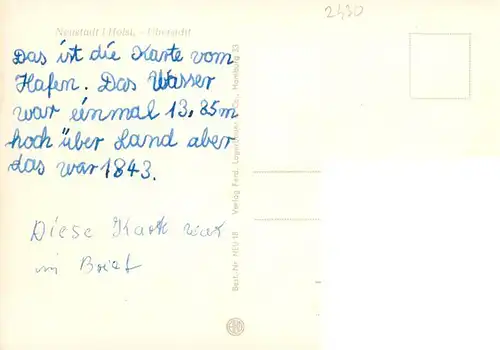 2430
Neustadt i Holst. - Übersicht
Das ist die Karte vom
Hafen. Das Wasser
war einmal 13,85m
hoch über Land aber
das war 1843.
Diese Karte war
im Brief
Best.-Nr NEU 18 Verlag Ferd. Lagerbauer & Co., Hamburg 23